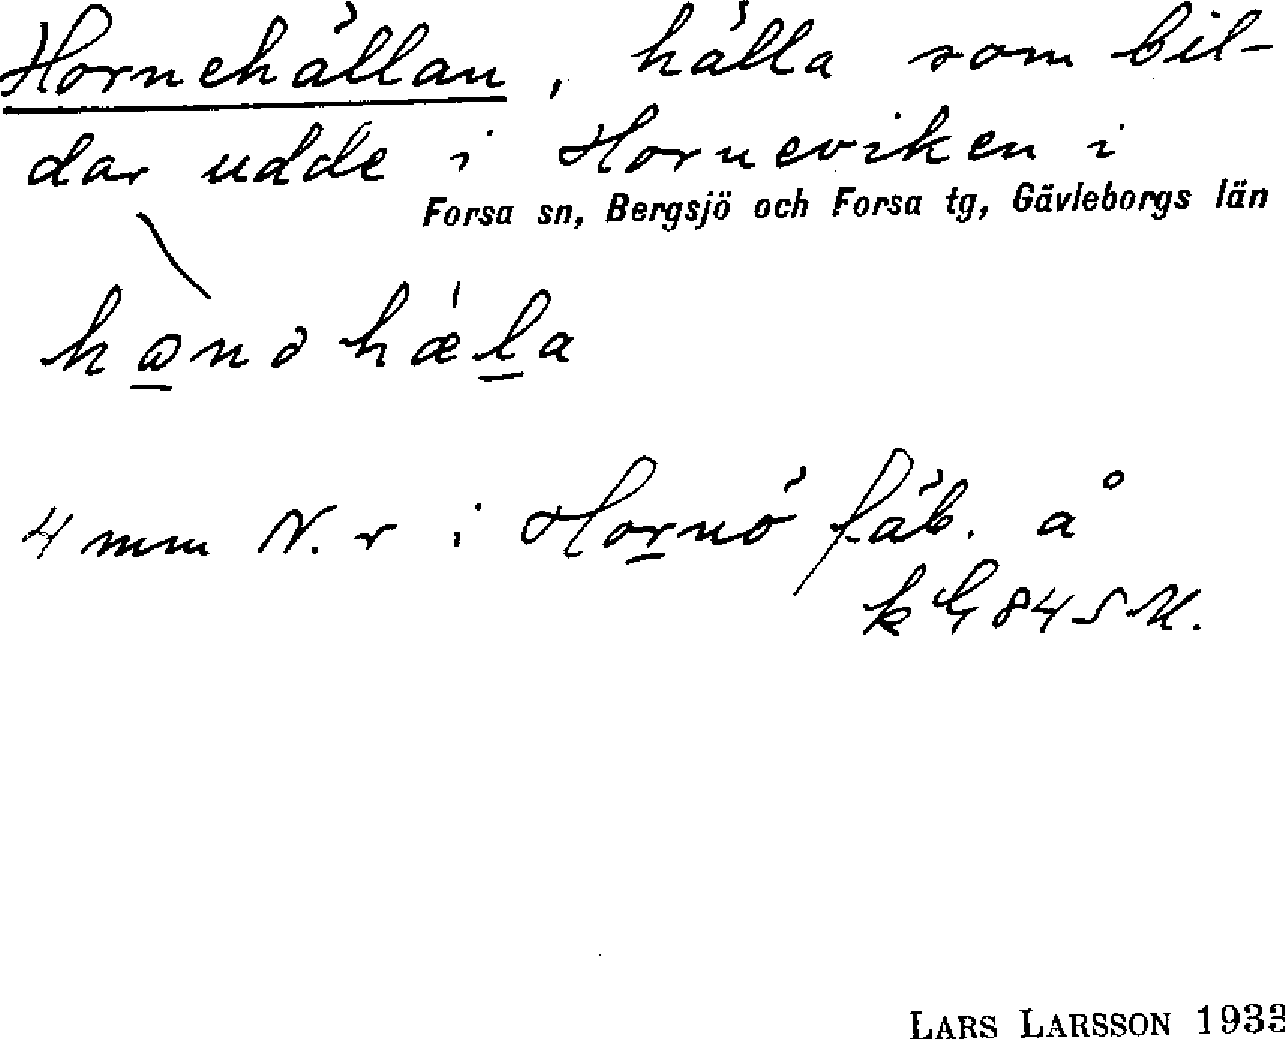 Hornehällan, hälla som bil-
dar udde i Horneviken i
Forsa sn, Bergsjö och Forsa tg, Gävleborgs län
4 mm N. r i Hornö fäb. å
LARS LARSSON 1933